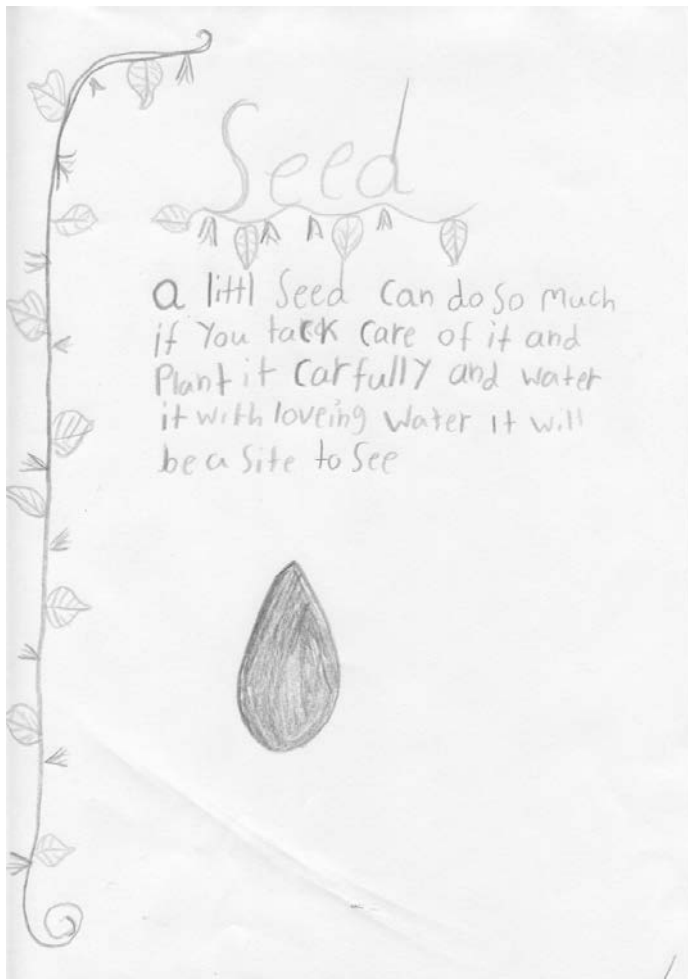 Seed
a littl Seed can do so much
if you tack care of it and
Plant it carfully and water
it with loveing water it will
be a site to see